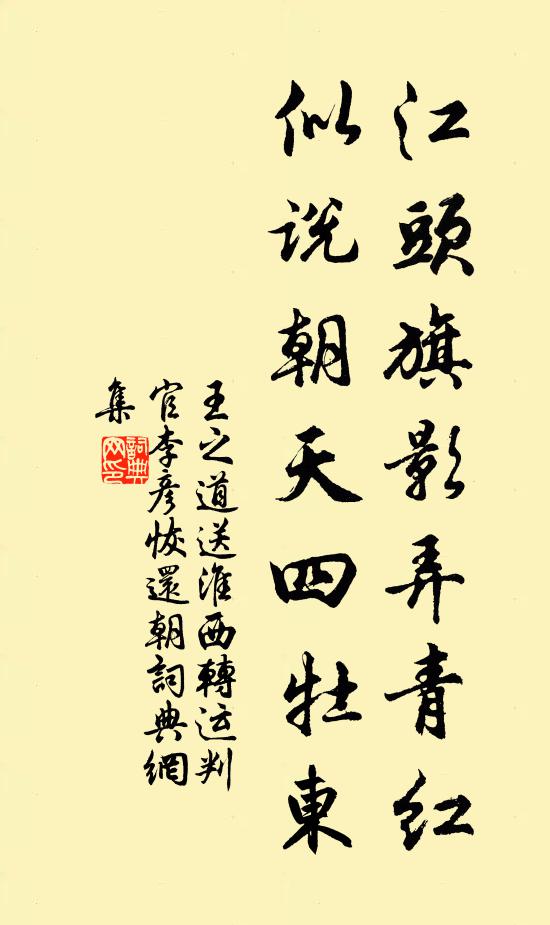 江頭旗影弄青紅
似說朝天四牡東
王之道送淮西轉运判
官李彥恢還朝詞典網
集
詞典
网印